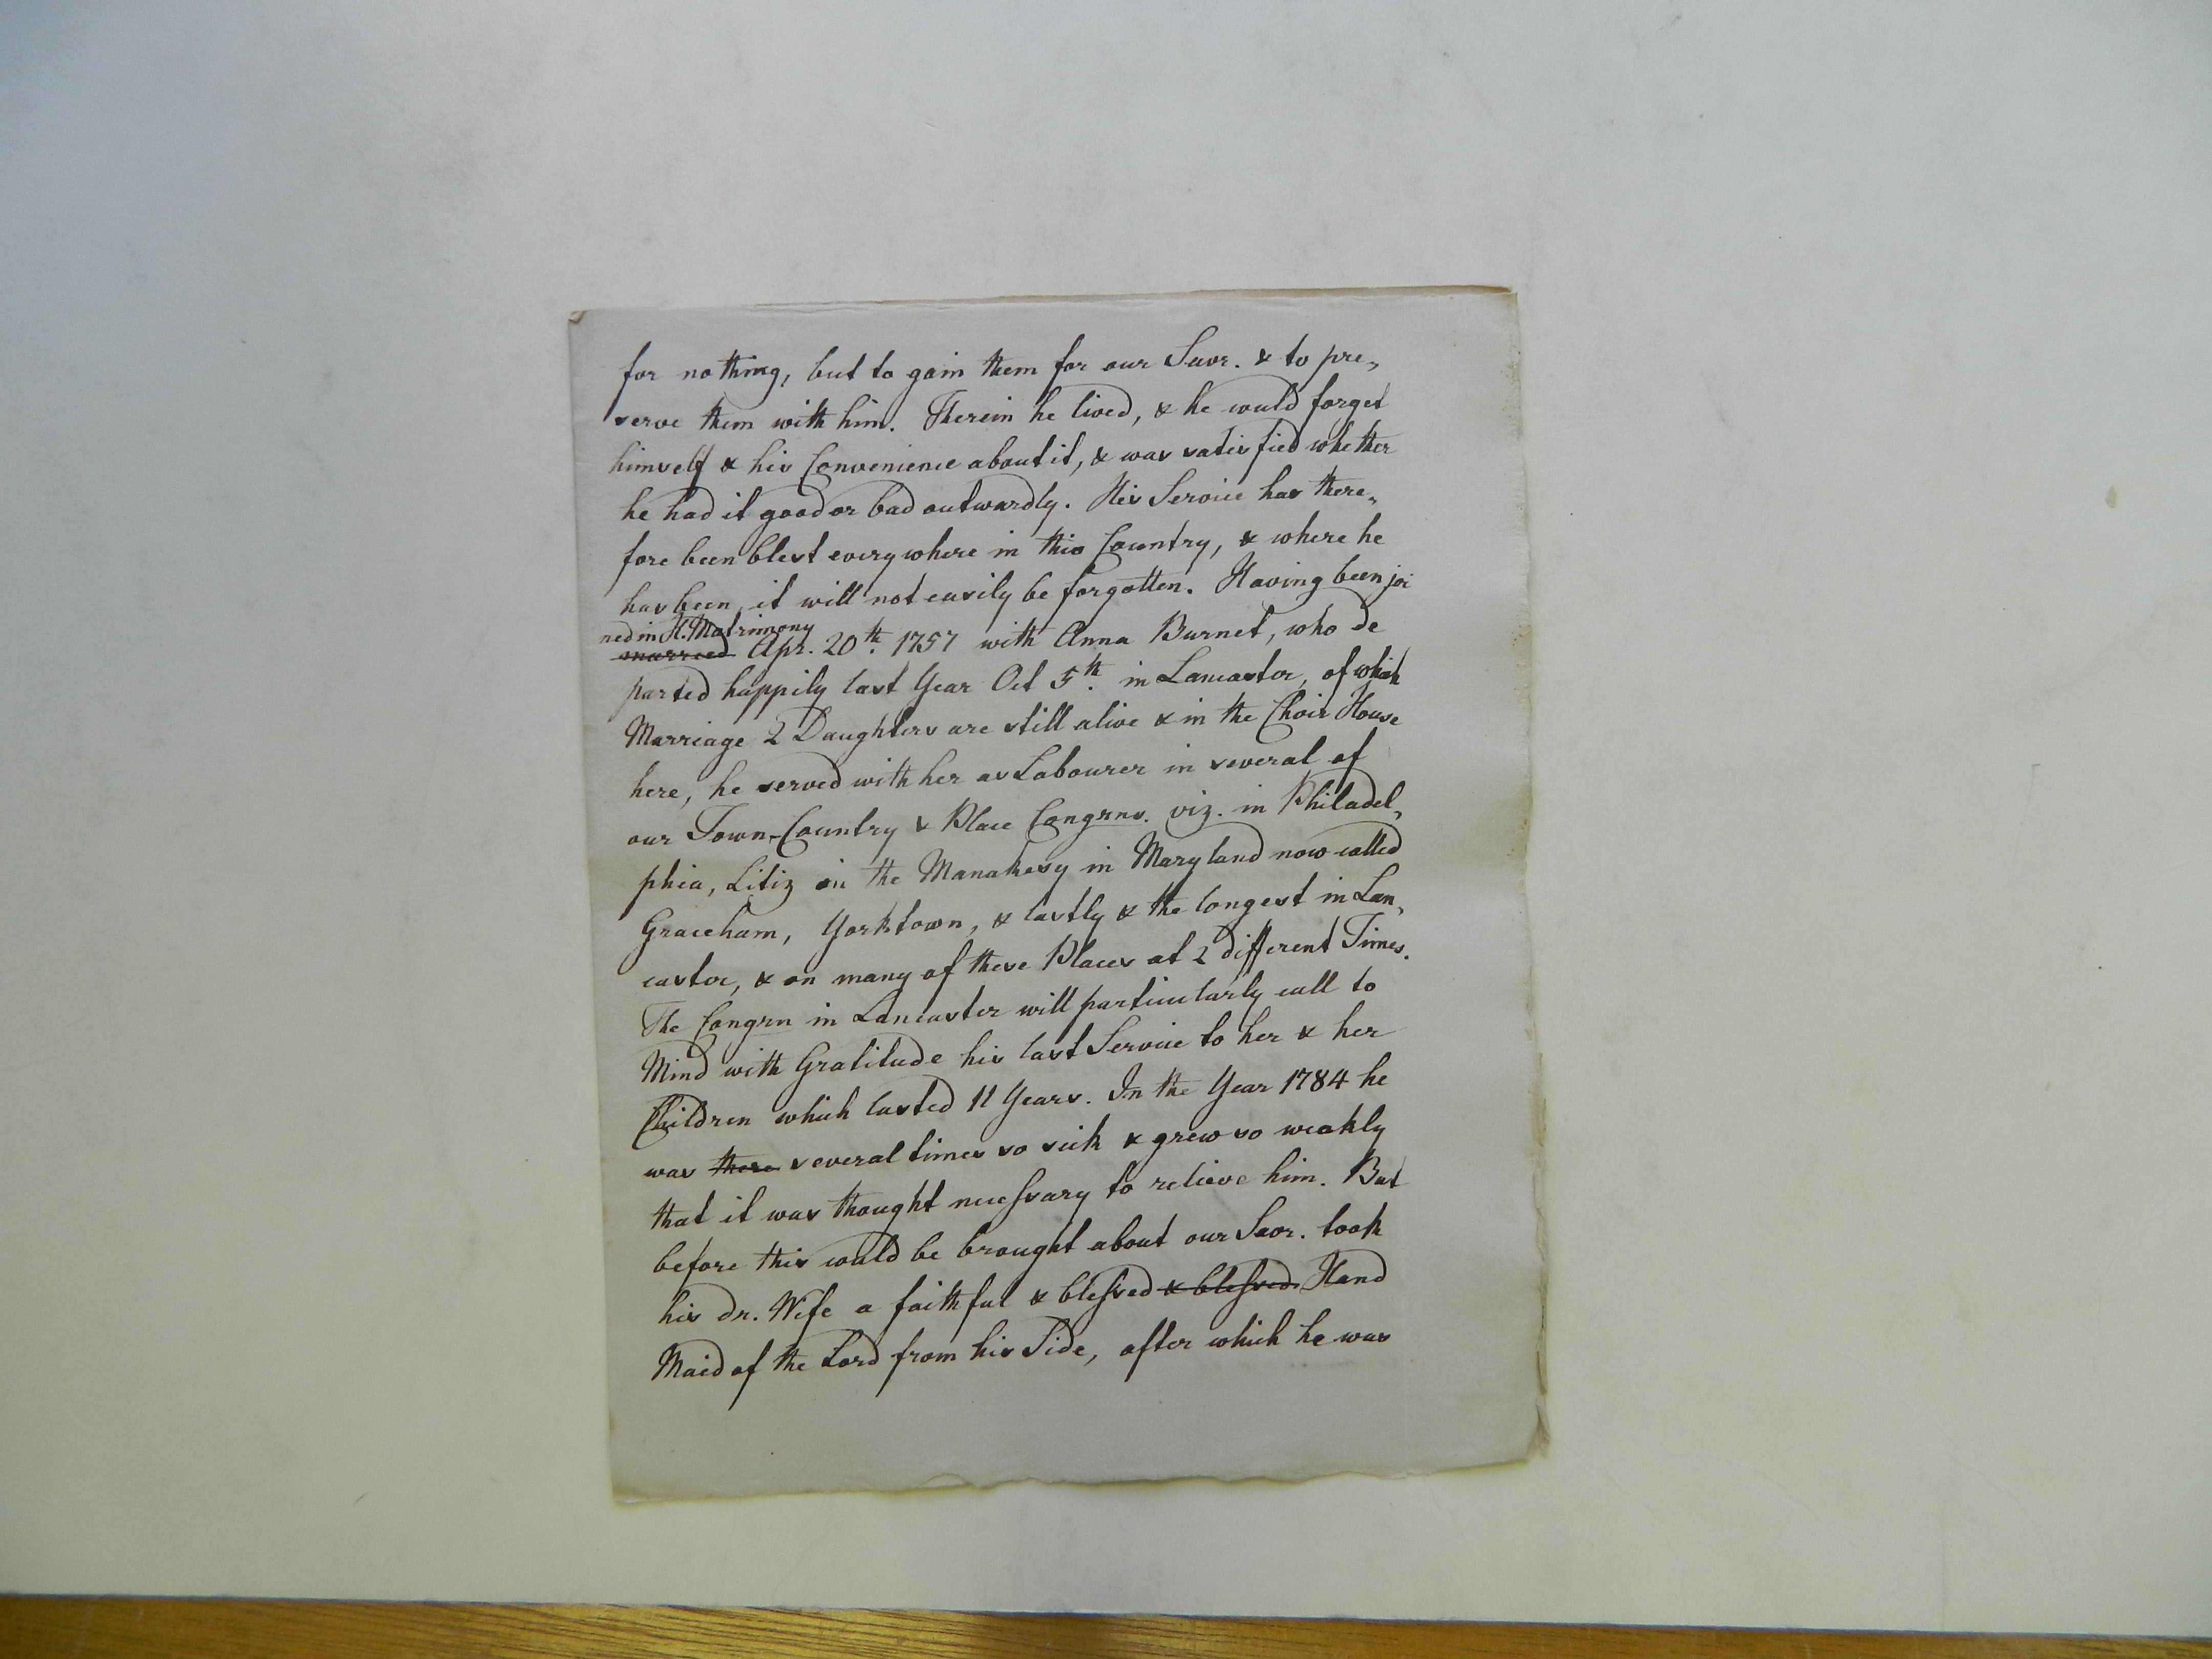 for nothing, but to gain them for our Savr. & to pre„
serve them with him. Therein he lived, & he would forget
himself & his Convenience about it, & was satisfied whether
he had it good or bad outwardly. His Service has there„
fore been blest every where in this Country, & where he
has been, it will not easily be forgotten. Having been joi
ned in H. Matrimony
married Apr. 20th. 1757 with Anna Burnet, who de
parted happily last Year Oct 5th. in Lancaster, of which
Marriage 2 Daughters are still alive & in the Choir House
here, he served with her as Labourer in several of
our Town-Country & Place Congrns. viz. in Philadel„
phia, Litiz on the Manakesy in Maryland now called
Graceham, Yorktown, & lastly & the longest in Lan„
caster, & on many of these Places at 2 different Times.
The Congrn in Lancaster will particularly call to
Mind with Gratitude his last Service to her & her
Children which lasted 11 Years. In the Year 1784 he
was there several times so sick & grew so weakly
that it was thought necessary to relieve him. But
before this could be brought about our Savr. took
his dr. Wife a faithful & blessed & blessed Hand
Maid of the Lord from his Side, after which he was